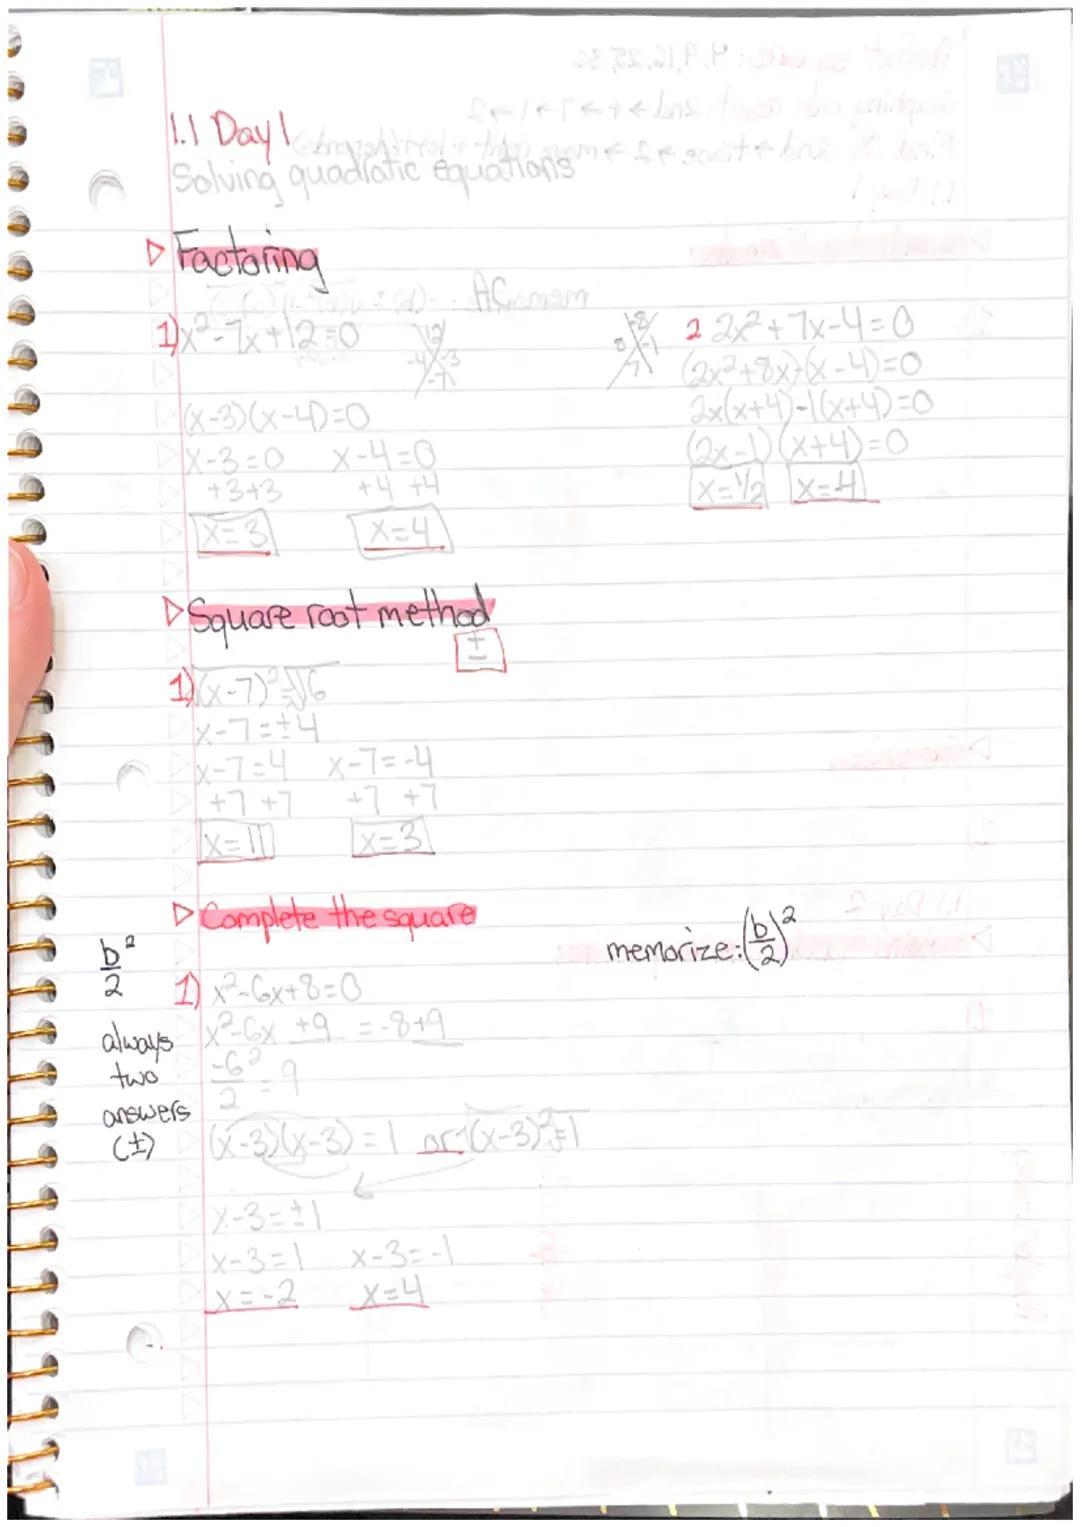 1.1 Day 1
Solving quadratic equations
Factoring
1) x²-7x+12=0
12
-4 -3
-7
(x-3)(x-4)=0
x-3=0 x-4=0
+3+3 +4 +4
x=3 x=4
-8
8 -1
7
2 2x²+7x-4=0
(2x²+8x)-(x-4)=0
2x(x+4)-1(x+4)=0
(2x-1)(x+4)=0
x=1/2 x=-4
Square root method
±
1) √(x-7)²=√16
x-7=±4
x-7=4 x-7=-4
+7 +7 +7 +7
x=11 x=3
Complete the square
memorize: (b/2)²
b²/2
always
two
answers
(±)
1) x²-6x+8=0
x²-6x +9 = -8+9
-6²/2 = 9
(x-3)(x-3)=1 or √(x-3)²=1
x-3=±1
x-3=1 x-3=-1
x=-2 x=4